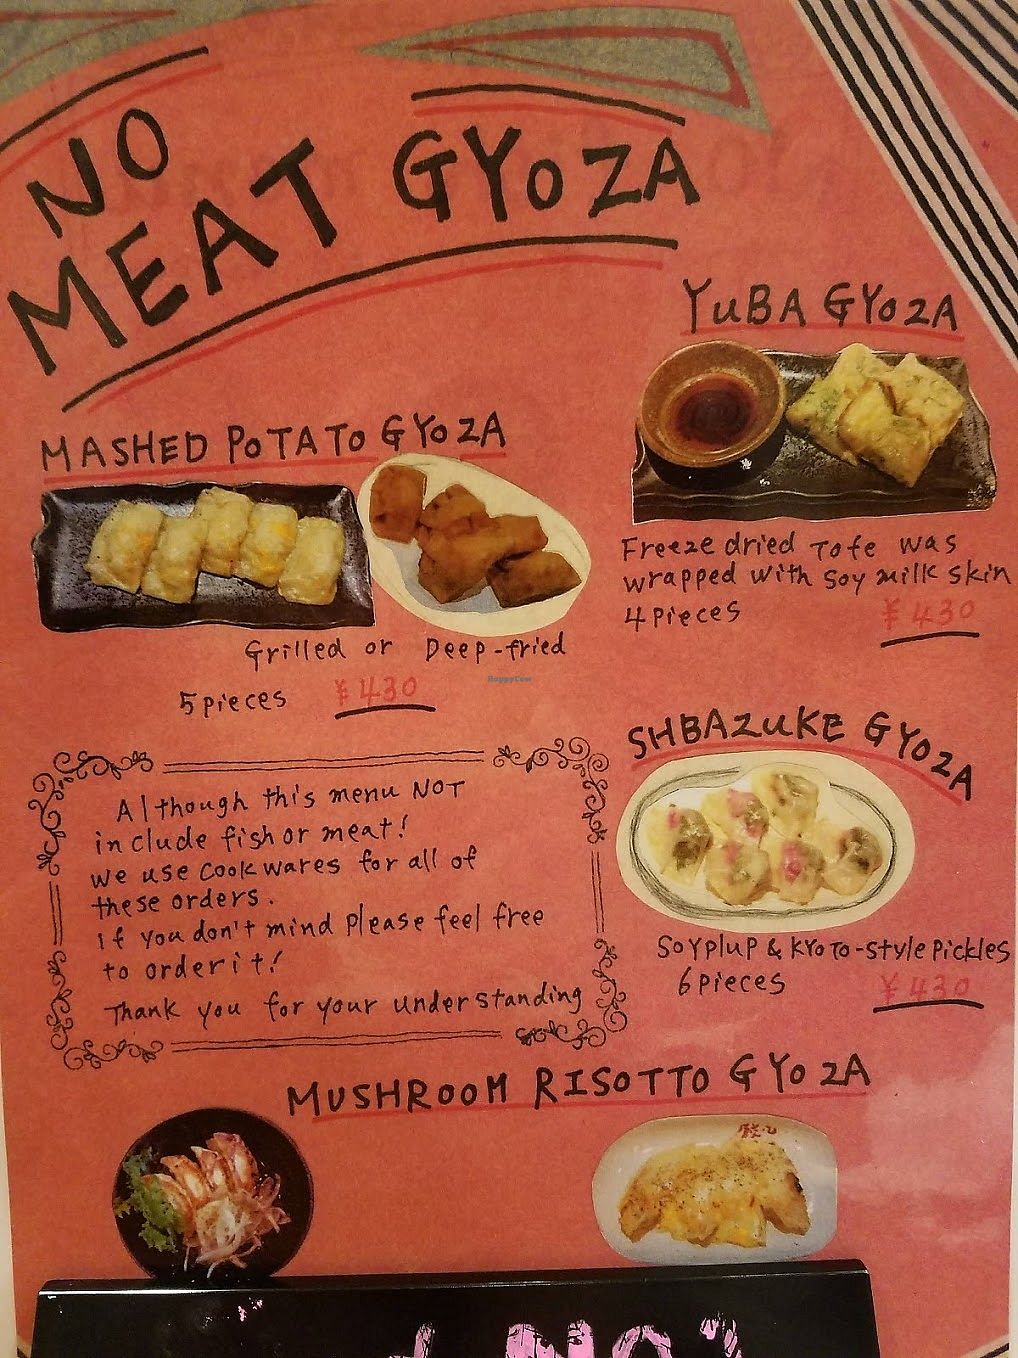 NO
MEAT GYOZA
YUBA GYOZA
MASHED POTATO GYOZA
Freeze dried Tofe was
wrapped with soy milk skin
4 pieces ¥430
Grilled or Deep-fried
5 pieces ¥430
HappyCow
SHBAZUKE GYOZA
Soyplup & Kyoto-style pickles
6 pieces ¥430
Although this menu NOT
include fish or meat!
we use cookwares for all of
these orders.
If you don't mind please feel free
to order it!
Thank you for your understanding
MUSHROOM RISOTTO GYOZA